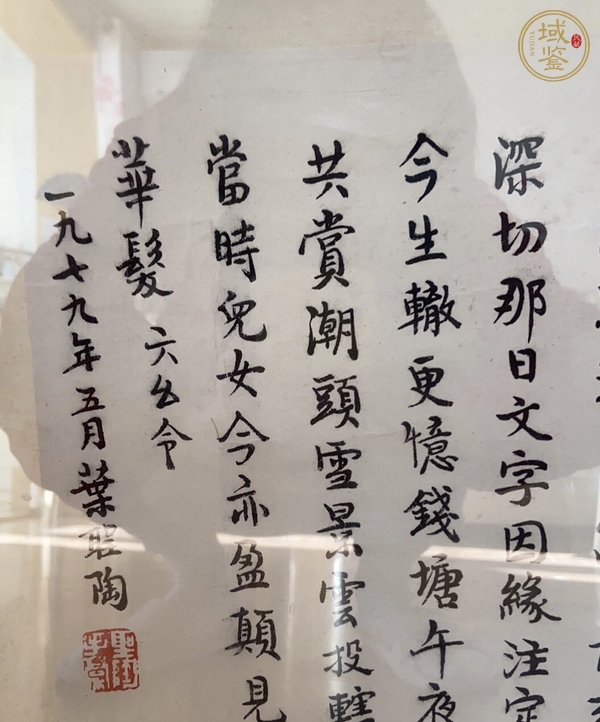 深切那日文字因緣注定
今生轍更憶錢塘午夜
共賞潮頭雪景雲投轄
當時兒女今亦盈顛見
華髮 六幺令
一九七九年五月葉聖陶
域鑒
YUJIAN